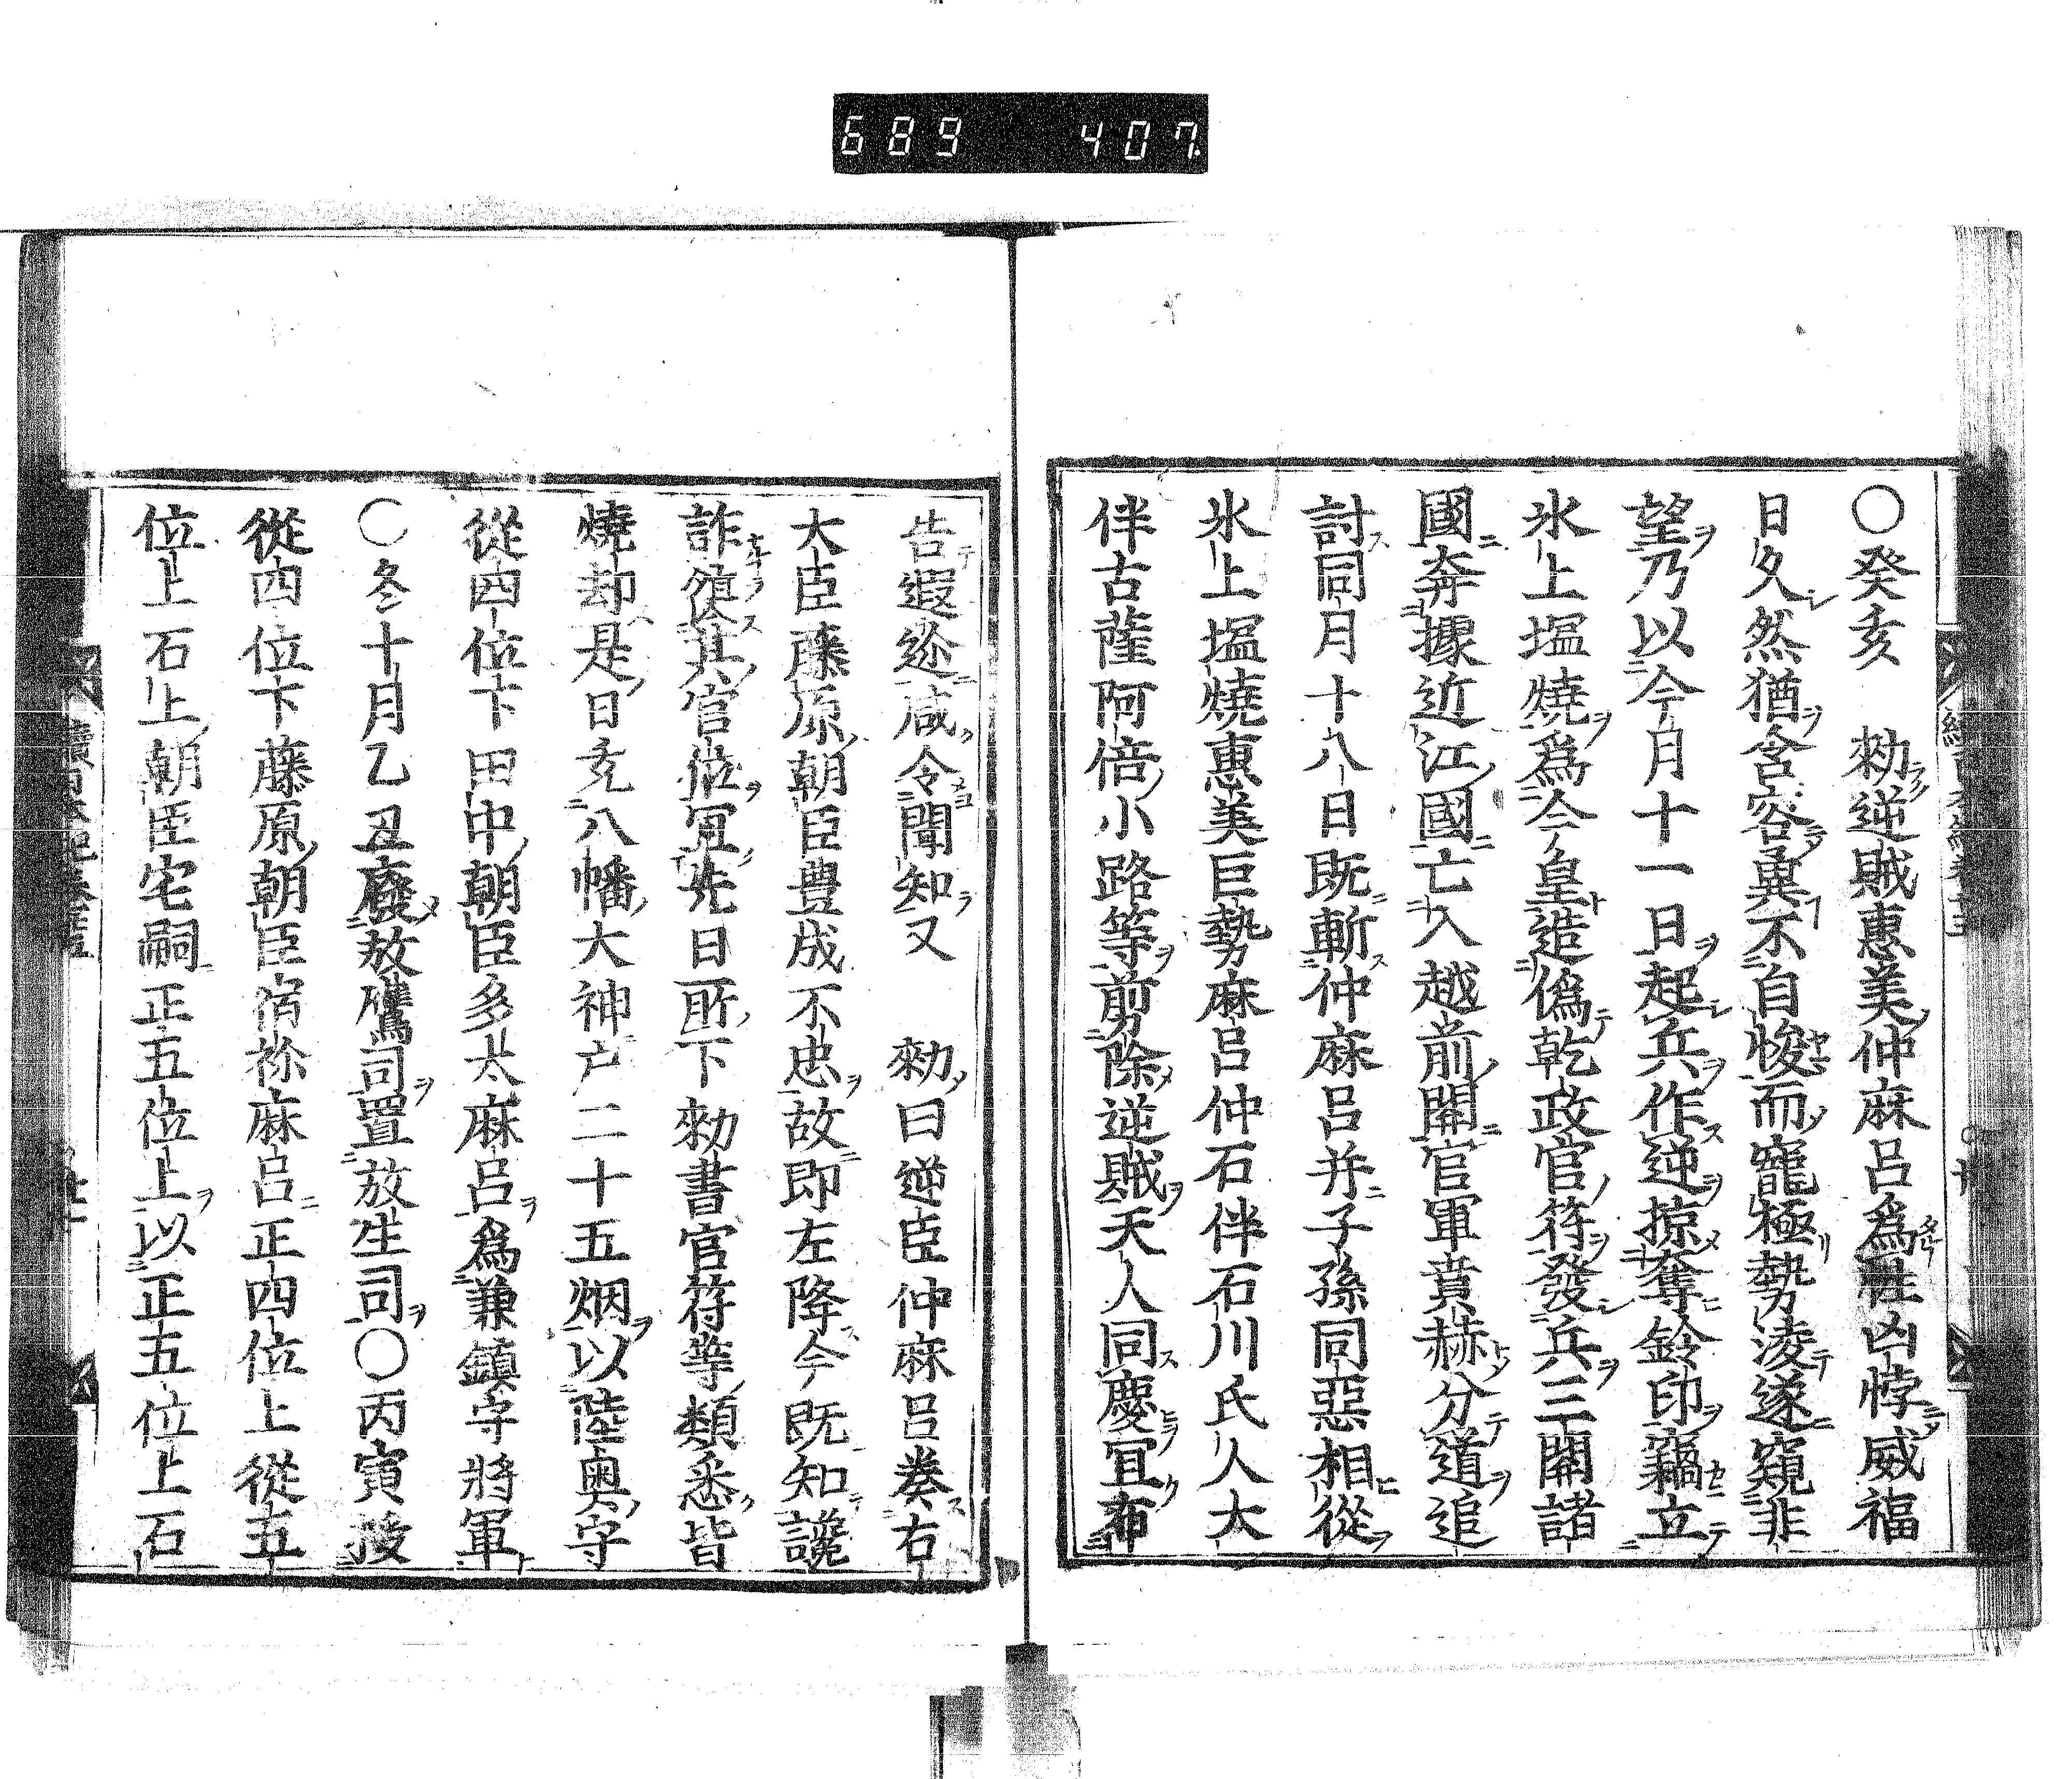 689 407
○癸亥　勑逆賊惠美仲麻呂爲性凶悖威福
日久然猶含容冀不自悛而寵極勢凌遂窺非
望乃以今月十一日起兵作逆掠奪鈴印竊立
氷上塩燒爲今皇造僞乾政官符發兵三關諸
國奔據近江國亡入越前關官軍賁赫分道追
討同月十八日既斬仲麻呂并子孫同惡相從
氷上塩燒惠美巨勢麻呂仲石伴石川氏人大
伴古薩阿倍小路等剪除逆賊天人同慶宜布
告遐迩咸令聞知又　勑曰逆臣仲麻呂奏右
大臣藤原朝臣豊成不忠故即左降今既知讒
詐復其官位宜先日所下勑書官符等類悉皆
燒却是日充八幡大神戸二十五烟以陸奥守
從四位下田中朝臣多太麻呂爲兼鎮守將軍
○冬十月乙丑廢放鷹司置放生司○丙寅授
從四位下藤原朝臣宿祢麻呂正四位上從五
位上石上朝臣宅嗣正五位上以正五位上石